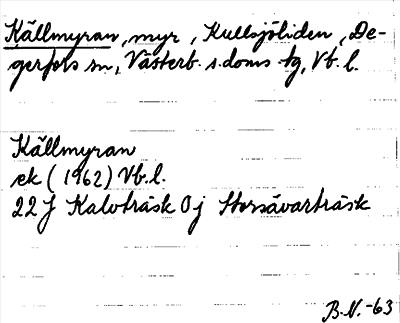 Källmyran, myr, Kullsjöliden, De-
gerfors sn, Västerb. s. doms tg, Vb. l.
Källmyran
ek (1962) Vb. l.
22 J Kalvträsk 0 j Storsävarträsk
B.N. -63